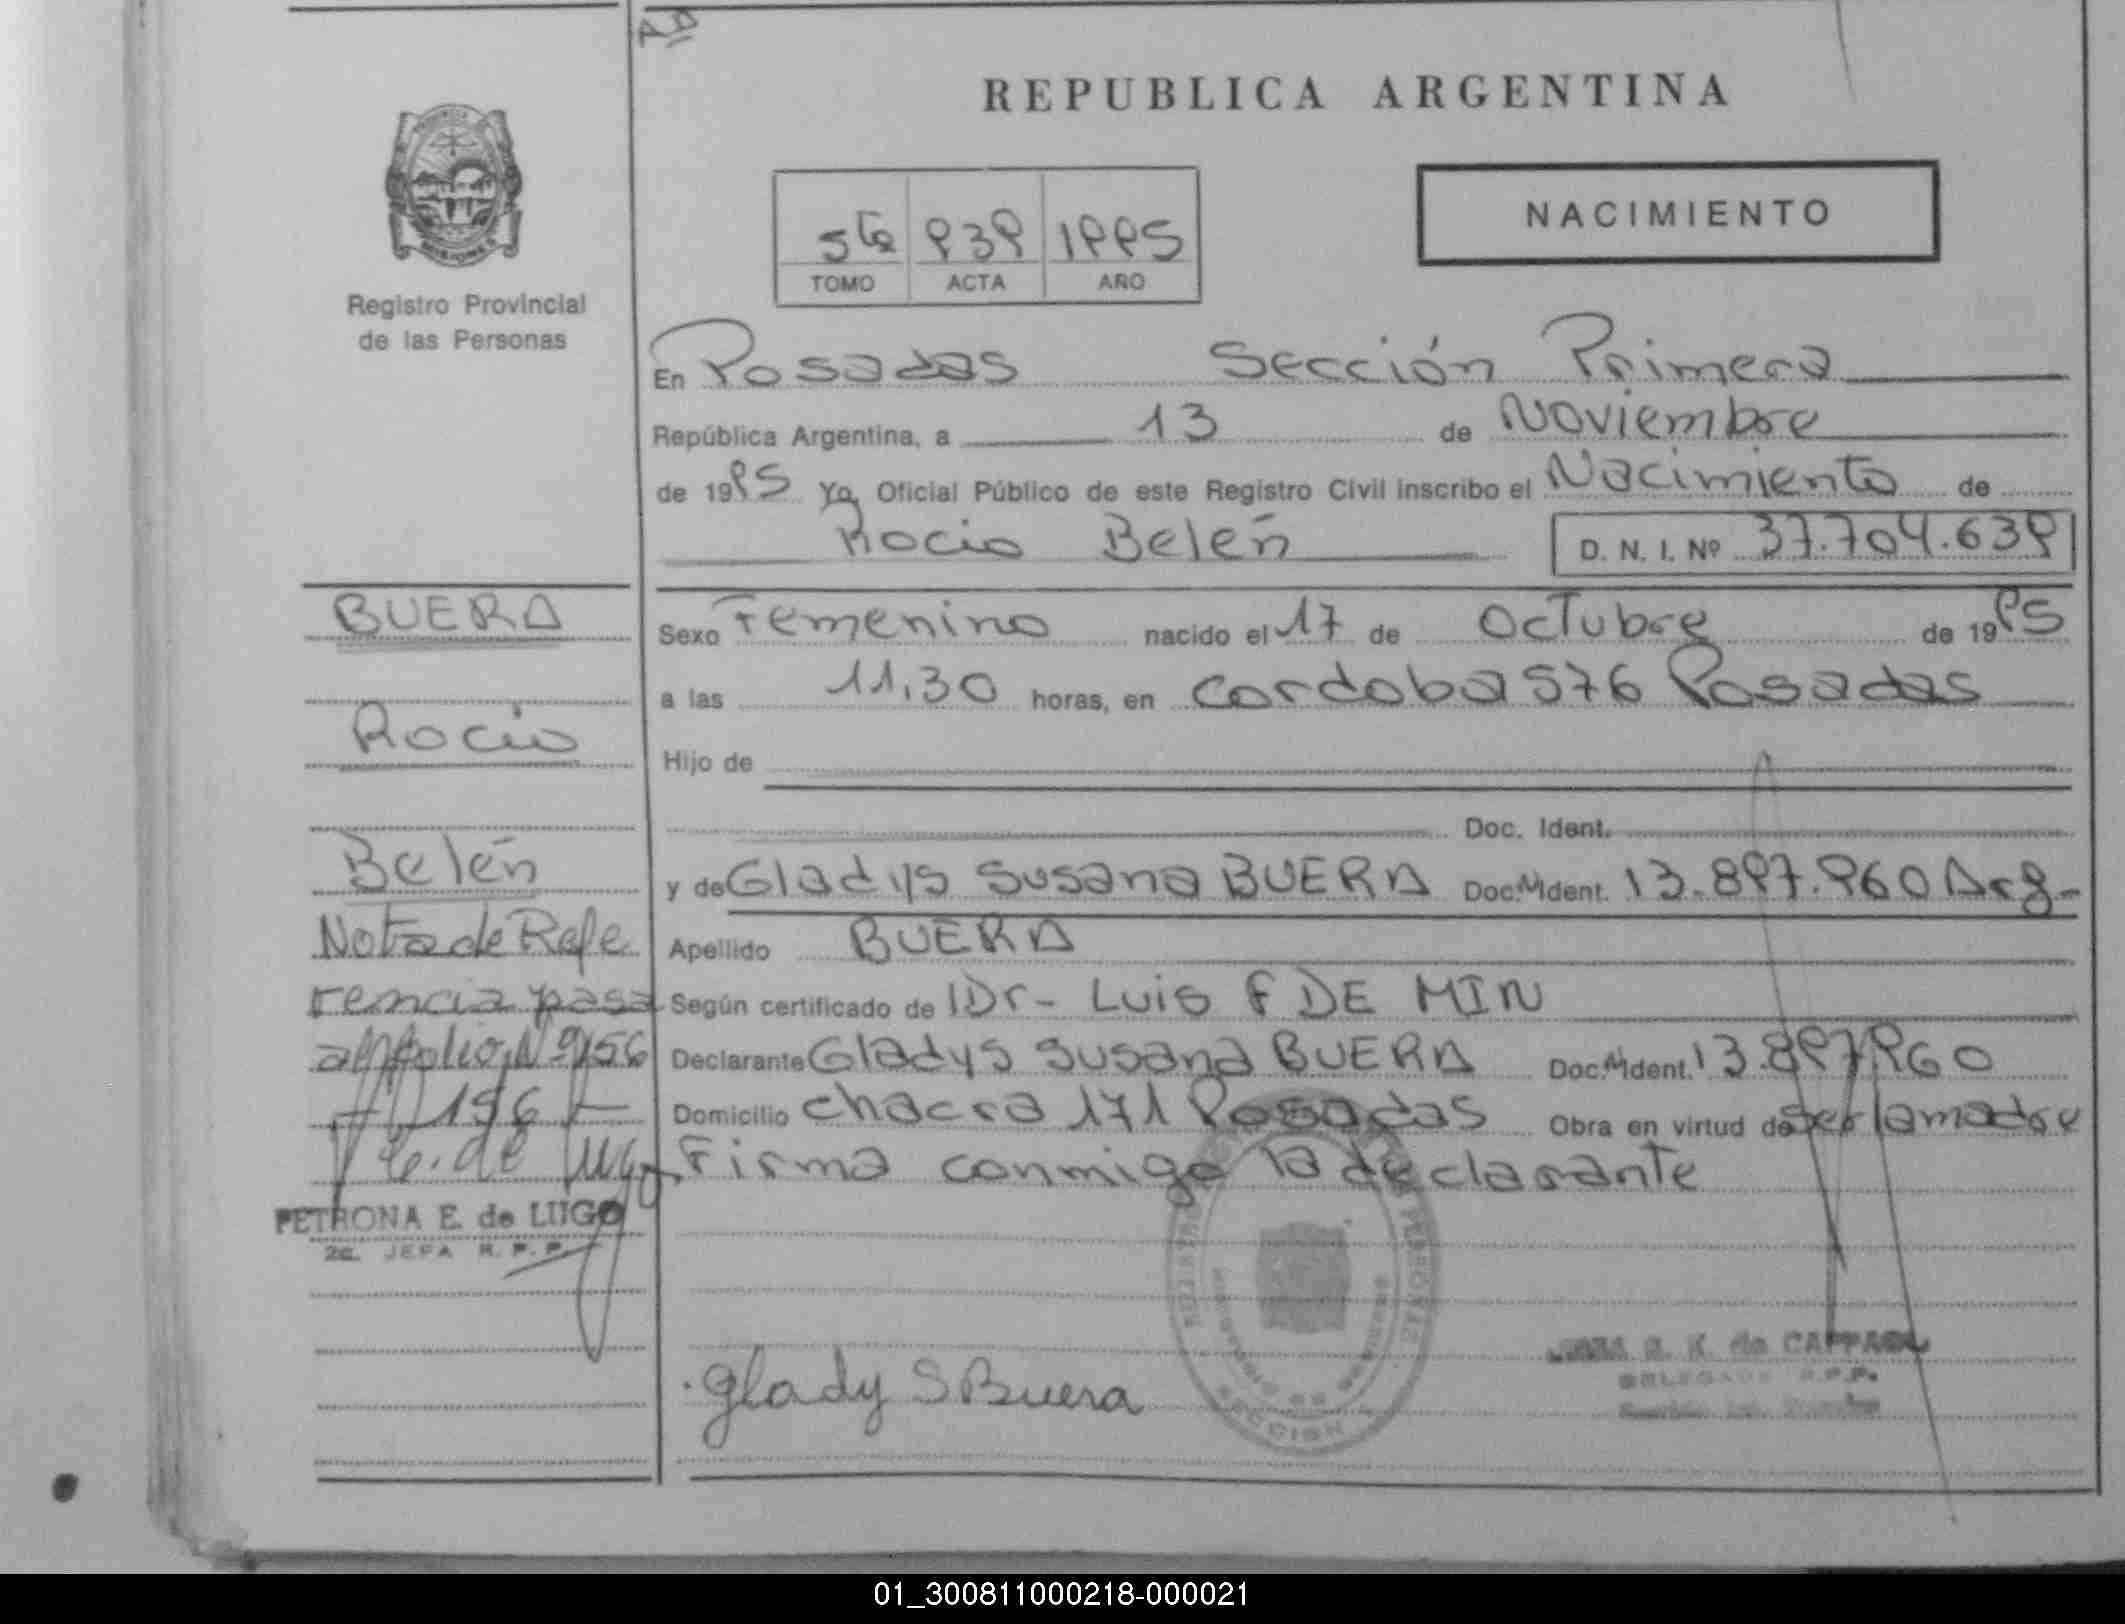 REPUBLICA ARGENTINA
NACIMIENTO
5to 939 1995
TOMO ACTA AÑO
Registro Provincial
de las Personas
En Posadas Sección Primera
República Argentina, a 13 de Noviembre
de 1995 Yo, Oficial Público de este Registro Civil inscribo el Nacimiento de
Rocio Belén D. N. I. Nº 37.704.639
BUERA
Rocio
Belén
Nota de Refe
rencia pasa
al folio Nº 156
- 156 -
PETRONA E. de LUGO
2a. JEFA R. P. P.
Sexo Femenino nacido el 17 de Octubre de 1995
a las 11,30 horas, en Cordoba 576 Posadas
Hijo de
Doc. Ident.
y de Gladys Susana BUERA Doc. Ident. 13.897.960 Arg.
Apellido BUERA
Según certificado de Dr- Luis F DE MIN
Declarante Gladys Susana BUERA Doc. Ident. 13.897960
Domicilio chacra 171 Posadas Obra en virtud de ser la madre
Firma conmigo la declarante
Glady S Buera
R. K. de
R.P.P.
SECCION
01_300811000218-000021